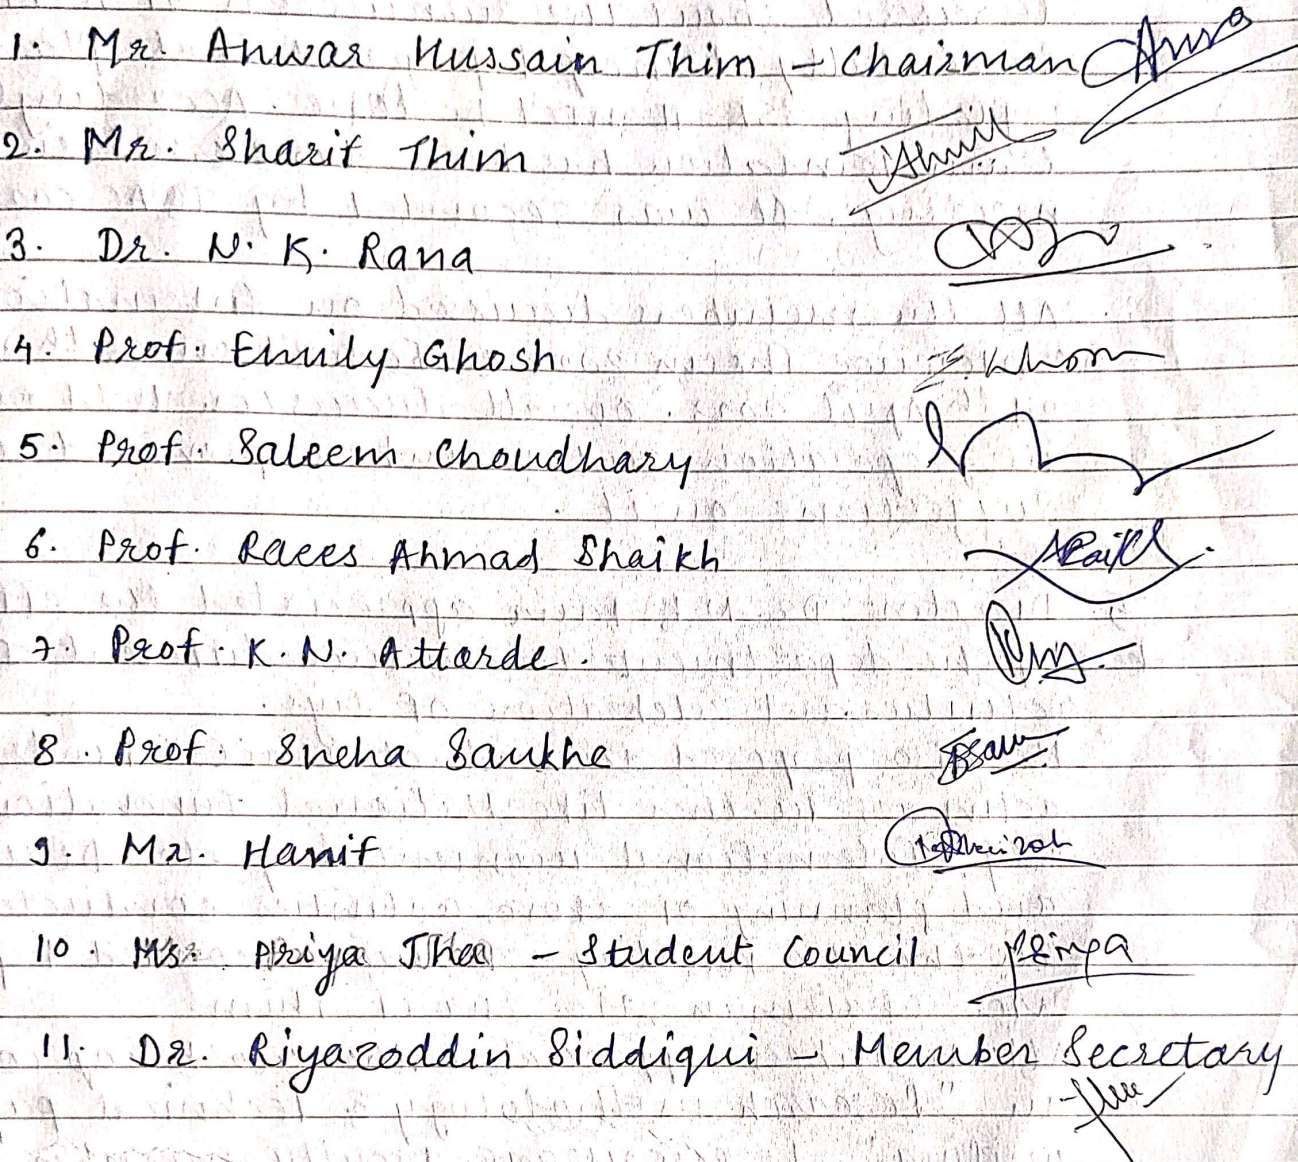 1. Mr. Anwar Hussain Thim - Chairman
2. Mr. Sharif Thim
3. Dr. N. K. Rana
4. Prof. Emily Ghosh
5. Prof. Saleem Choudhary
6. Prof. Raees Ahmad Shaikh
7. Prof. K. N. Attarde.
8. Prof. Sneha Saukhe
9. Mr. Hanif
10. Ms. Priya Jha - Student Council Priya
11. Dr. Riyazoddin Siddiqui - Member Secretary